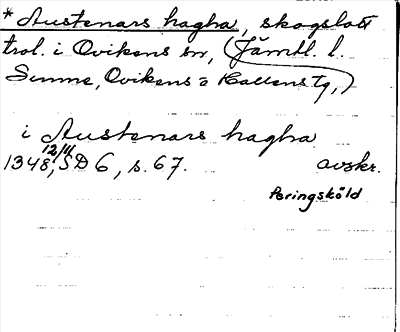 * Austenars hagha, skogslott
trol. i Ovikens sn, (Jämtl. l.
Sunne, Ovikens o Hallens tg,)
i Austenars hagha
12/11
1348, SD 6, s. 67. avskr.
Peringsköld